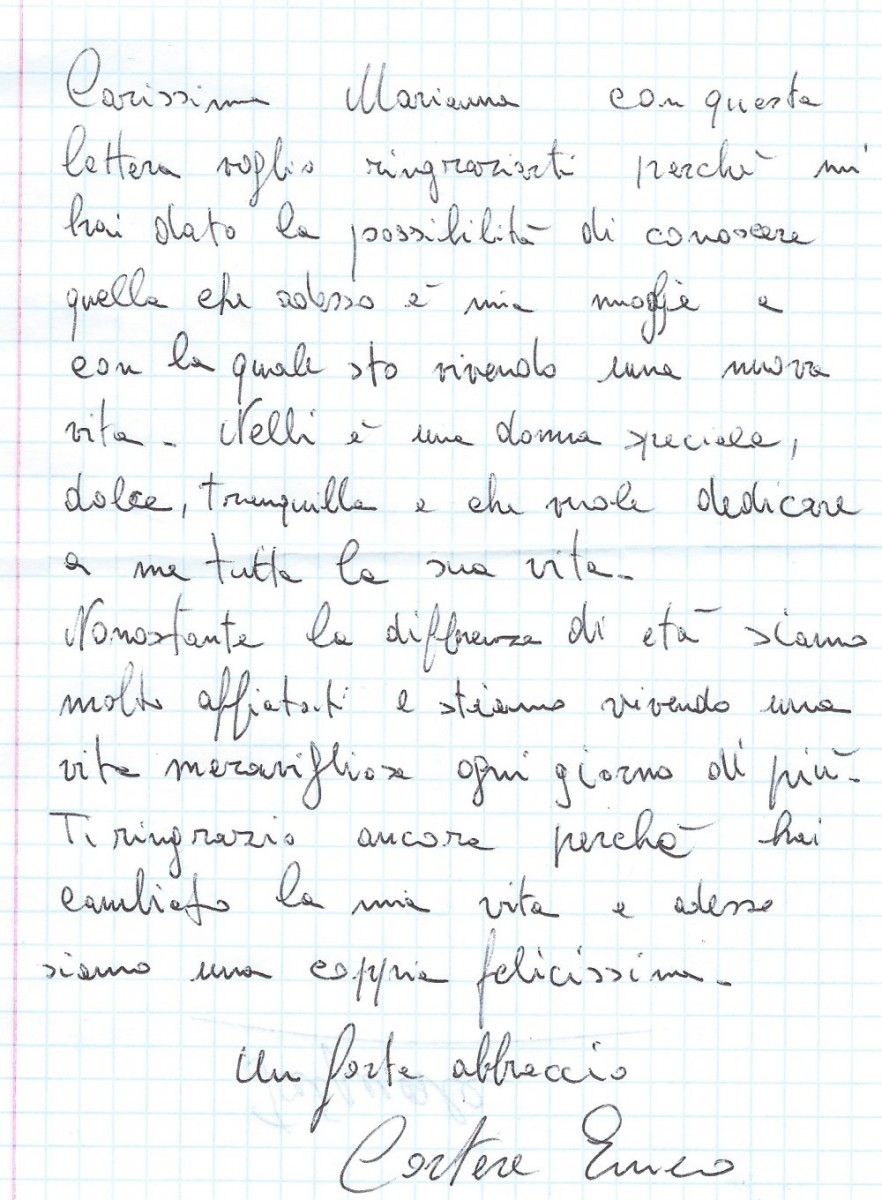 Carissima Marianna con questa
lettera voglio ringraziarti perchè mi
hai dato la possibilità di conoscere
quella che adesso è mia moglie e
con la quale sto vivendo una nuova
vita. Nelli è una donna speciale,
dolce, tranquilla e che vuole dedicare
a me tutta la sua vita.
Nonostante la differenza di età siamo
molto affiatati e stiamo vivendo una
vita meravigliosa ogni giorno di più.
Ti ringrazio ancora perchè hai
cambiato la mia vita e adesso
siamo una coppia felicissima.
Un forte abbraccio